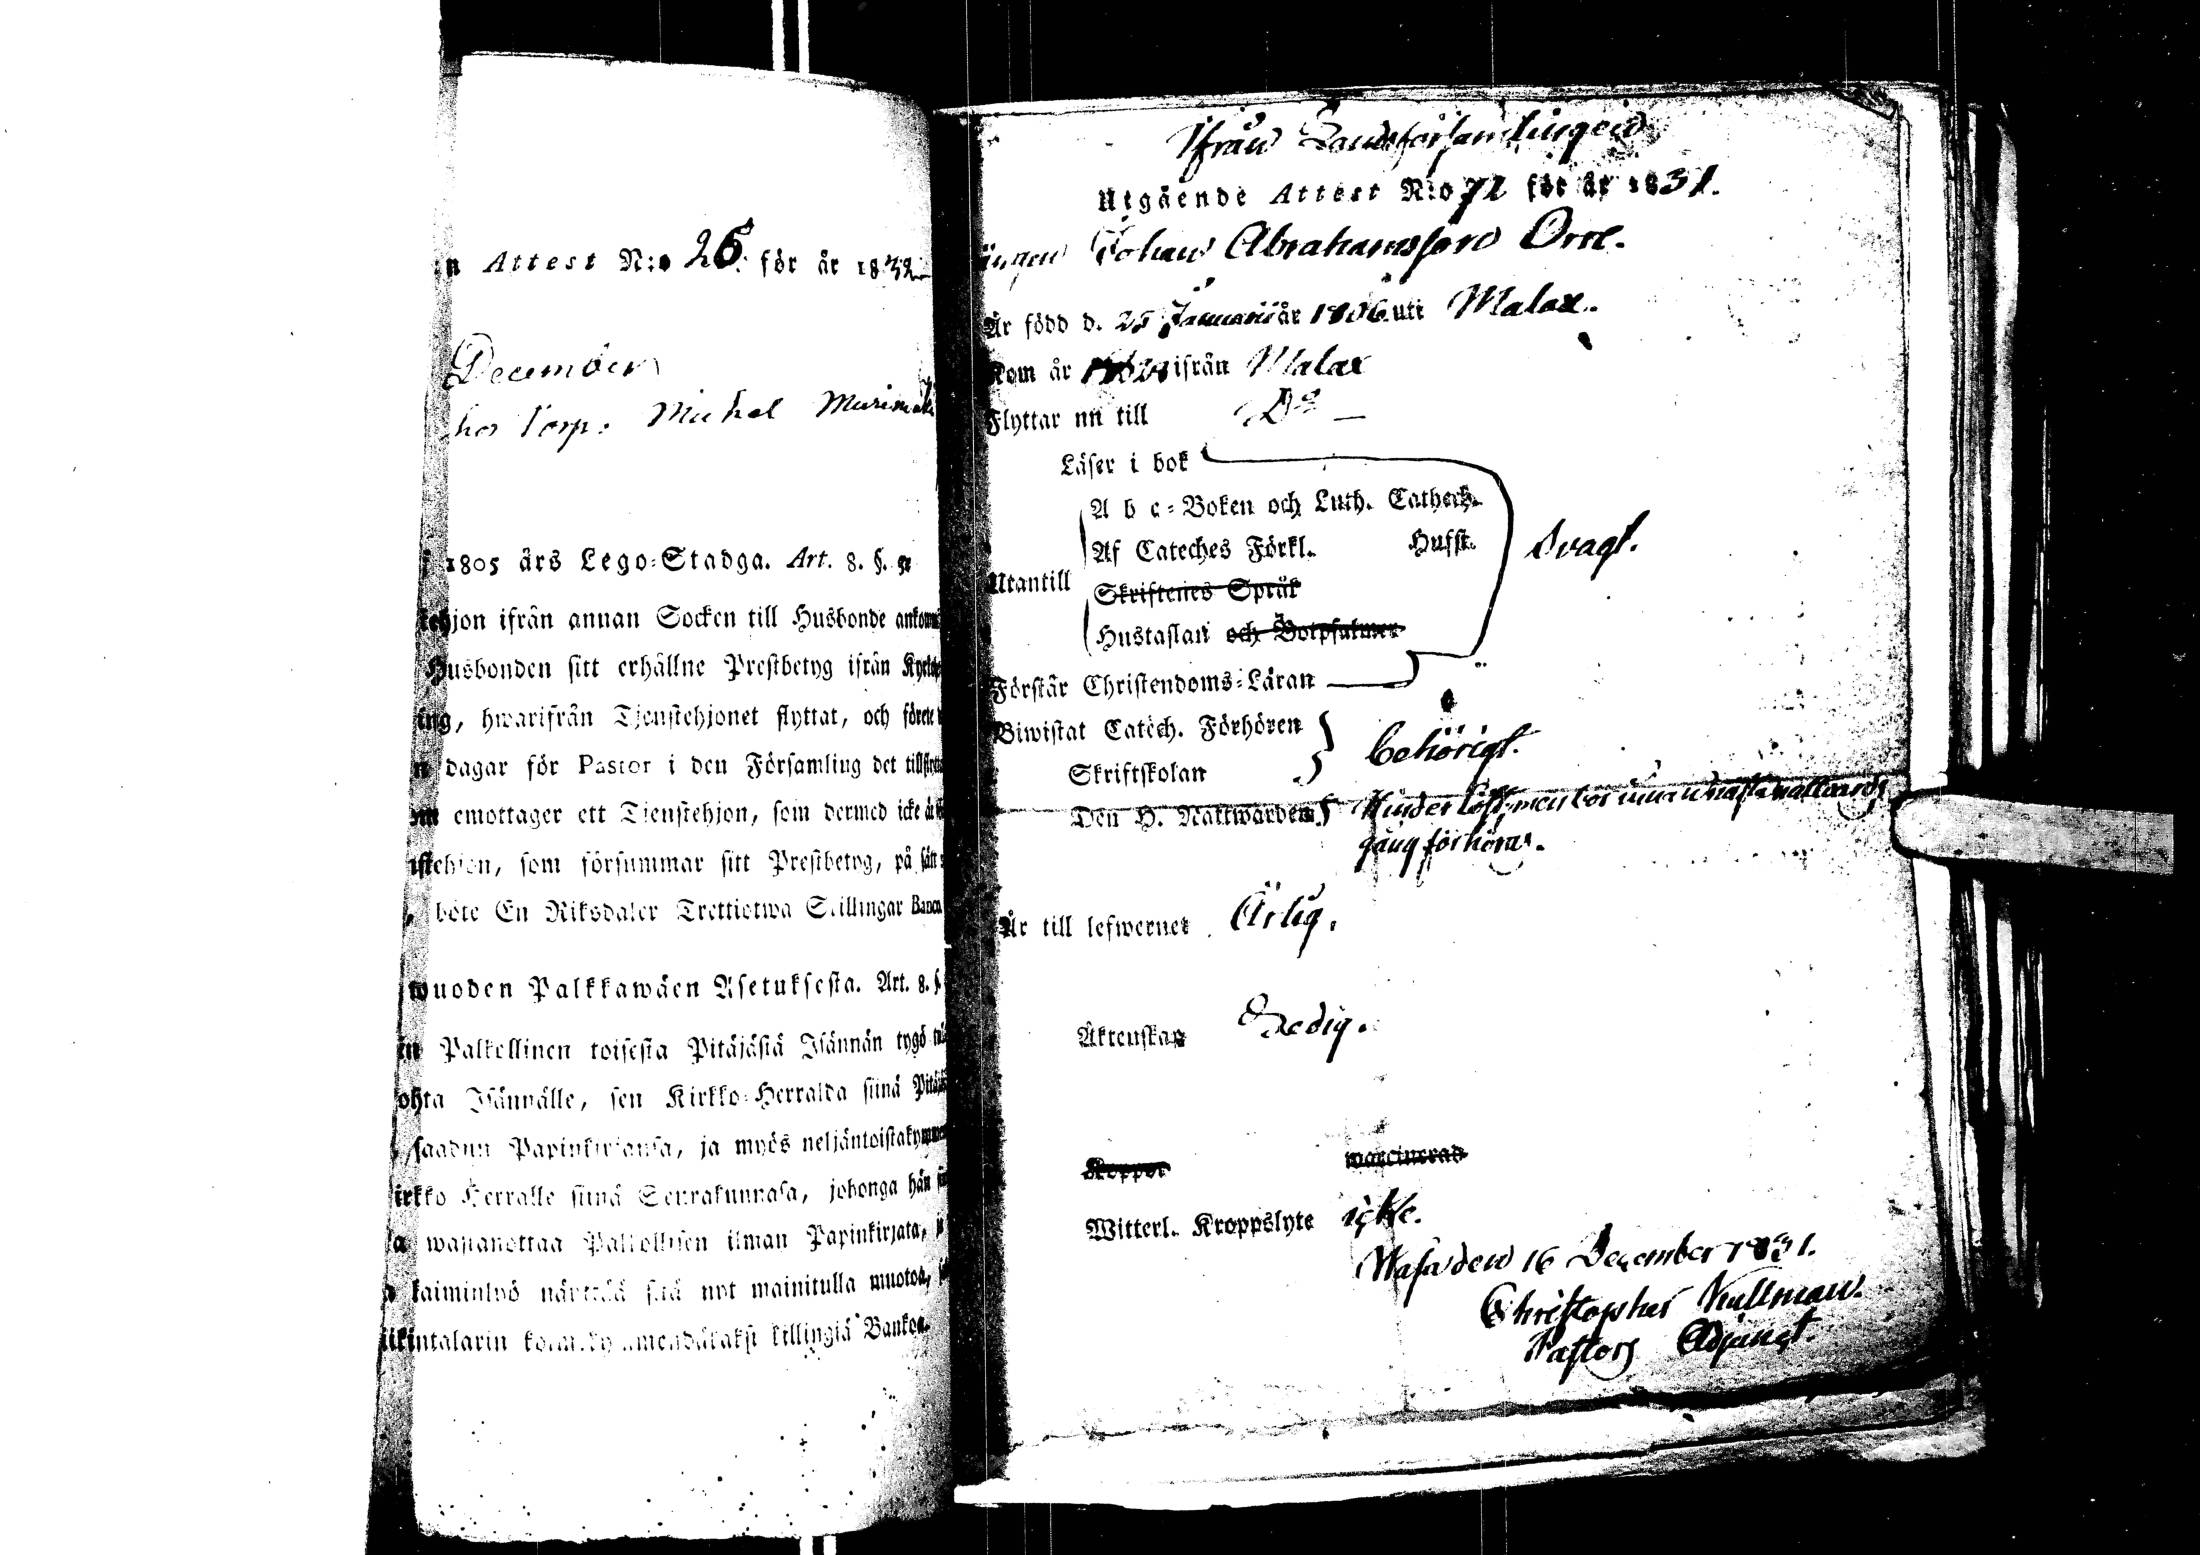 n Attest N:o 26. för år 1832
December
hos Torp. Michel
1805 års Lego-Stadga. Art. 8. §.
hjon ifrån annan Socken till Husbonde
Husbonden sitt erhållne Prestbetyg ifrån
ing, hwarifrån Tjenstehjonet flyttat, och
dagar för Pastor i den Församling det
emottager ett Tjenstehjon, som dermed icke
stehjon, som försummar sitt Prestbetyg, på sätt
böte En Riksdaler Trettiotwa Skillingar Banco
wuoden Palkkawäen Asetuksesta. Art. 8. §.
Palkellinen toisesta Pitäjästä Isännän tygö
ohta Isännälle, sen Kirkko-Herralda siinä
saadun Papinkirjansa, ja myös neljäntoistakymmen
irkko Herralle siinä Seurakunnasa, johonga hän
wastanottaa Palkollisen ilman Papinkirjata,
kaiminlyö näyttää sitä nyt mainitulla muotoa,
iikintalarin kolmekymmendäkaksi killingiä Bankoa.
Ifrån Landsförsamlingen
Utgående Attest N:o 72 för år 1831.
Johan Abrahamsson Orre.
Är född d. 25 Januarii år 1806 uti Malax.
Kom år ifrån Malax
Flyttar nu till Do
Läser i bok
A b c-Boken och Luth. Catheches.
Af Cateches Förkl. Hufst.
Utantill
Skriftenes Språk
Hustaflan och Botpsalmer
svagt.
Förstår Christendoms-Läran
Biwistat Catech. Förhören
Skriftskolan
behörigt.
Den H. Nattwarden Hinderlöst, men bör innan nästa nattvards
gång förhöras.
Är till lefwernet Ärlig.
Äktenskap Ledig.
Koppor waccinerad
Witterl. Kroppslyte icke.
Wasa den 16 December 1831.
Christopher Kullman.
Pastors Adjunct.